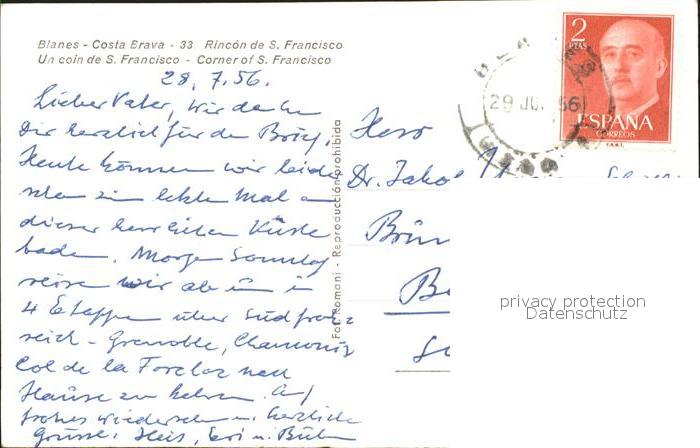 Blanes - Costa Brava - 33 Rincón de S. Francisco
Un coin de S. Francisco - Corner of S. Francisco
28. 7. 56.
Lieber Vater, wir danken
Dir herzlich für den Brief.
Heute können wir leider
schon zum letzten Mal an
dieser herrlichen Küste
baden. Morgen Sonntag
reisen wir ab um in
4 Etappen über Südfrank-
reich - Grenoble, Chamonix
Col de la Forclaz nach
Hause zu kehren. Auf
frohes Wiedersehn u. herzliche
Grüsse:
Fot. Romani - Reproducción prohibida
Herr
Dr. Jakob
2
PTAS
ESPAÑA
CORREOS
F.N.M.T.
29 JUL 56
privacy protection
Datenschutz